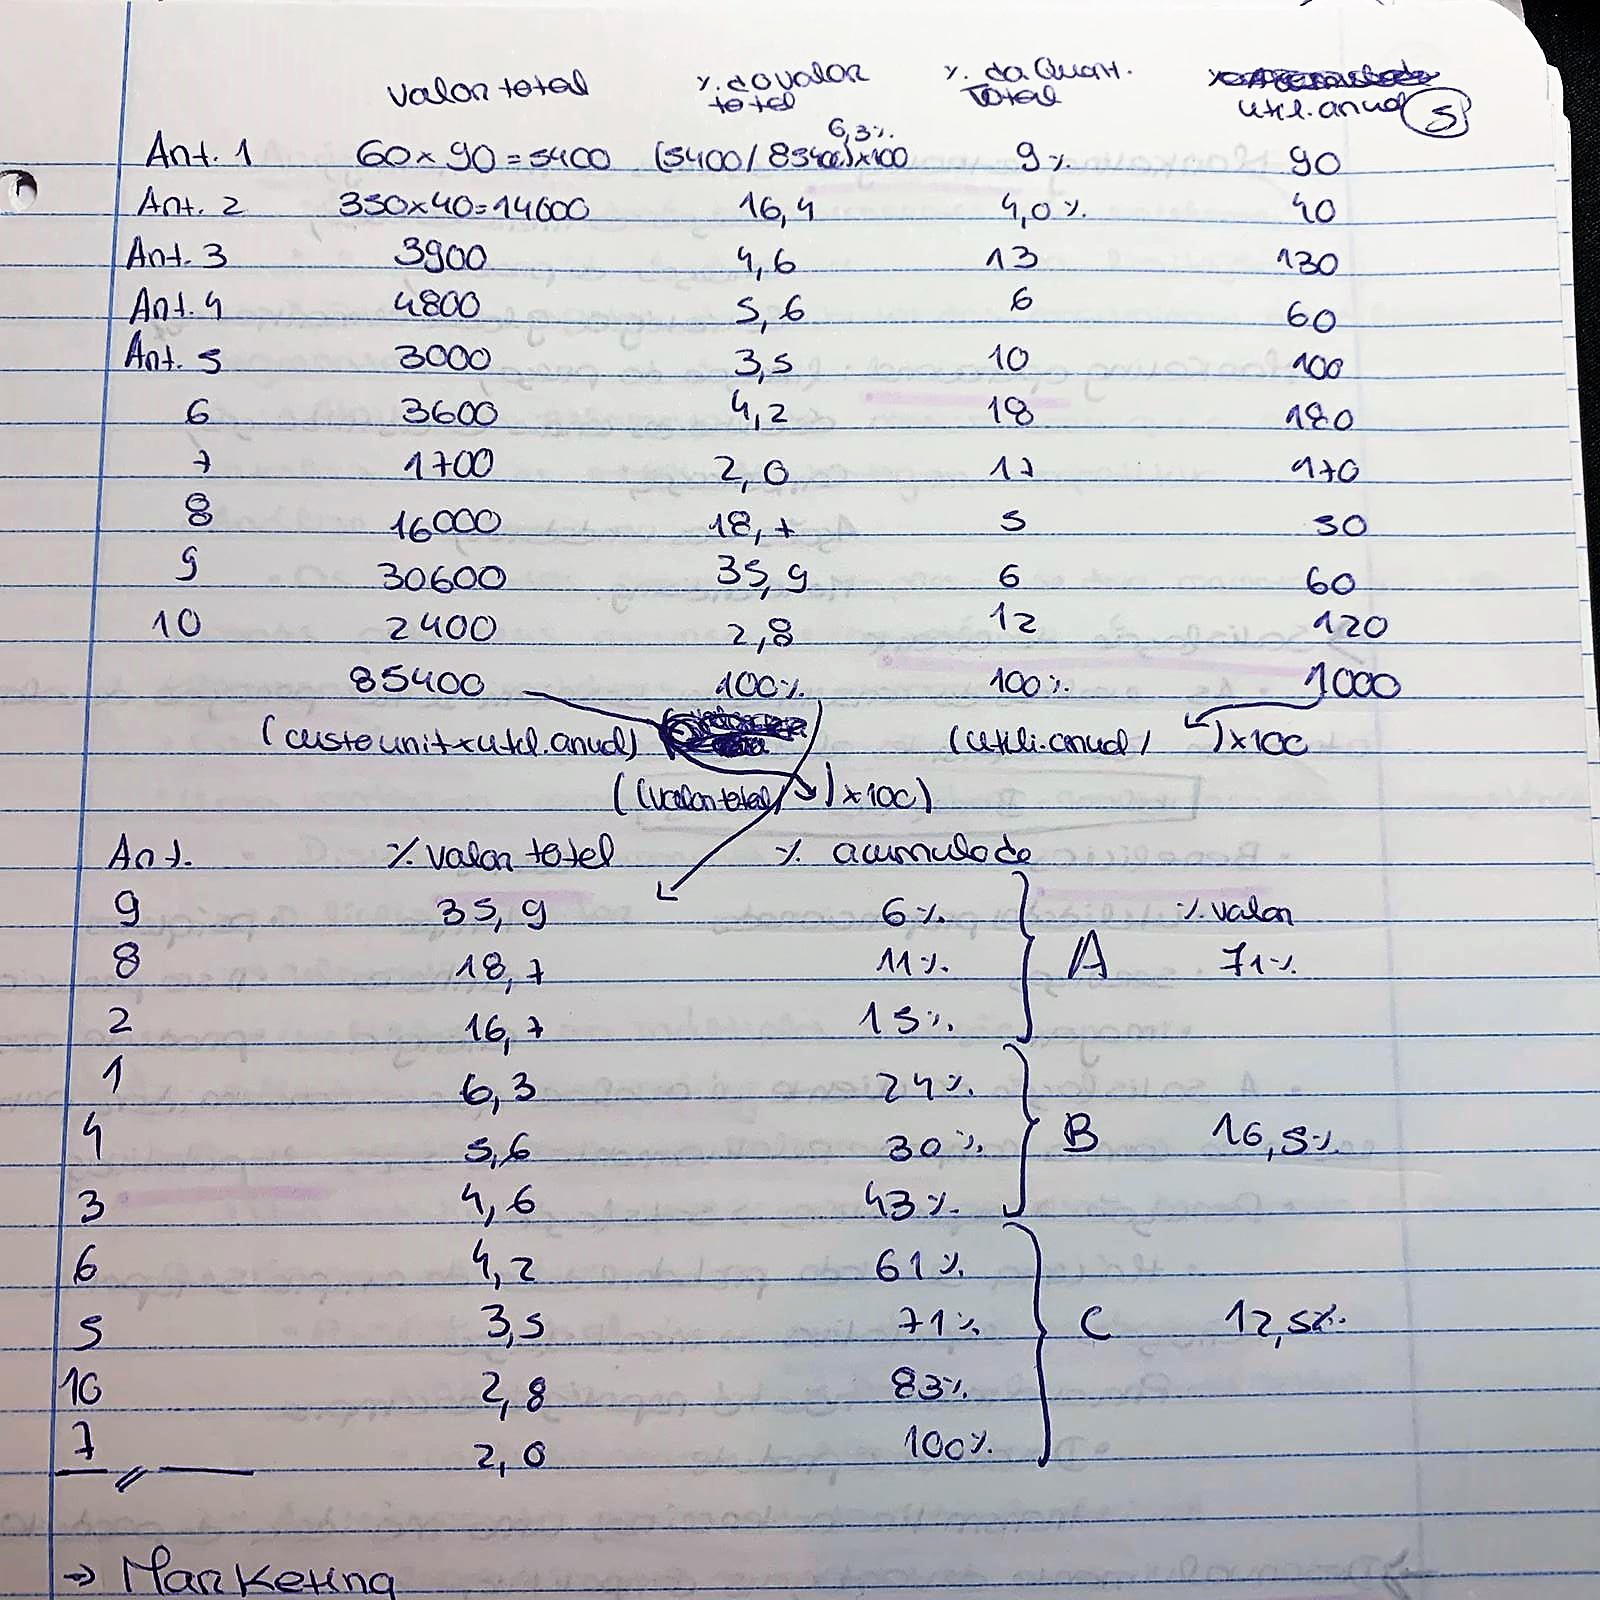 valor total % do valor total % da Quant. Total util. anual 5
Art. 1 60 x 90 = 5400 (5400 / 85400) x 100 6,3% 9% 90
Art. 2 350 x 40 = 14000 16,4 4,0% 40
Art. 3 3900 4,6 13 130
Art. 4 4800 5,6 6 60
Art. 5 3000 3,5 10 100
6 3600 4,2 18 180
7 1700 2,0 17 170
8 16000 18,7 5 50
9 30600 35,9 6 60
10 2400 2,8 12 120
85400 100% 100% 1000
(custo unit x util. anual) (utili. anual / ) x 100
((valor total / ) x 100)
Art. % valor total % acumulado
9 35,9 6% % valor
8 18,7 11% A 71%
2 16,7 15%
1 6,3 24%
4 5,6 30% B 16,5%
3 4,6 43%
6 4,2 61%
5 3,5 71% C 12,5%
10 2,8 83%
7 2,0 100%
→ Marketing